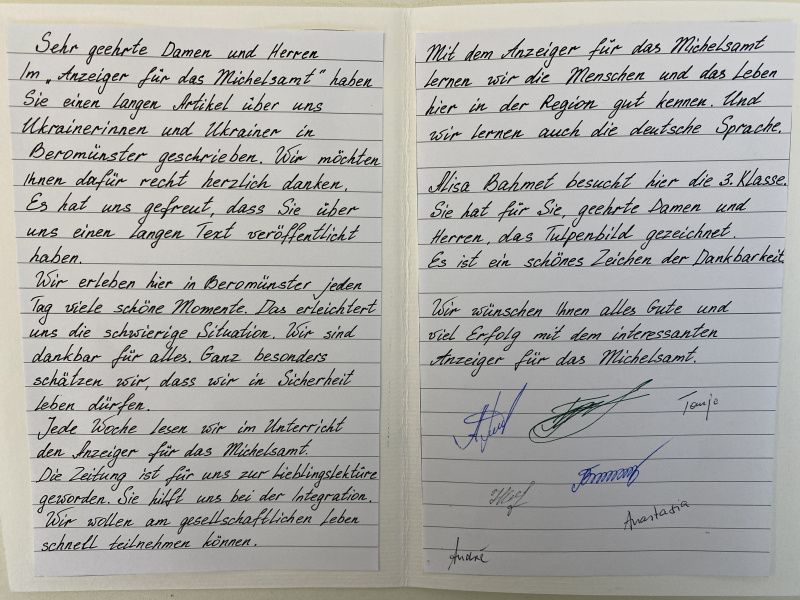 Sehr geehrte Damen und Herren
Im „Anzeiger für das Michelsamt" haben
Sie einen langen Artikel über uns
Ukrainerinnen und Ukrainer in
Beromünster geschrieben. Wir möchten
Ihnen dafür recht herzlich danken.
Es hat uns gefreut, dass Sie über
uns einen langen Text veröffentlicht
haben.
Wir erleben hier in Beromünster jeden
Tag viele schöne Momente. Das erleichtert
uns die schwierige Situation. Wir sind
dankbar für alles. Ganz besonders
schätzen wir, dass wir in Sicherheit
leben dürfen.
Jede Woche lesen wir im Unterricht
den Anzeiger für das Michelsamt.
Die Zeitung ist für uns zur Lieblingslektüre
geworden. Sie hilft uns bei der Integration.
Wir wollen am gesellschaftlichen Leben
schnell teilnehmen können.
Mit dem Anzeiger für das Michelsamt
lernen wir die Menschen und das Leben
hier in der Region gut kennen. Und
wir lernen auch die deutsche Sprache.
Alisa Bahmet besucht hier die 3. Klasse.
Sie hat für Sie, geehrte Damen und
Herren, das Tulpenbild gezeichnet.
Es ist ein schönes Zeichen der Dankbarkeit
Wir wünschen Ihnen alles Gute und
viel Erfolg mit dem interessanten
Anzeiger für das Michelsamt.
Tanja
Anastasia
André